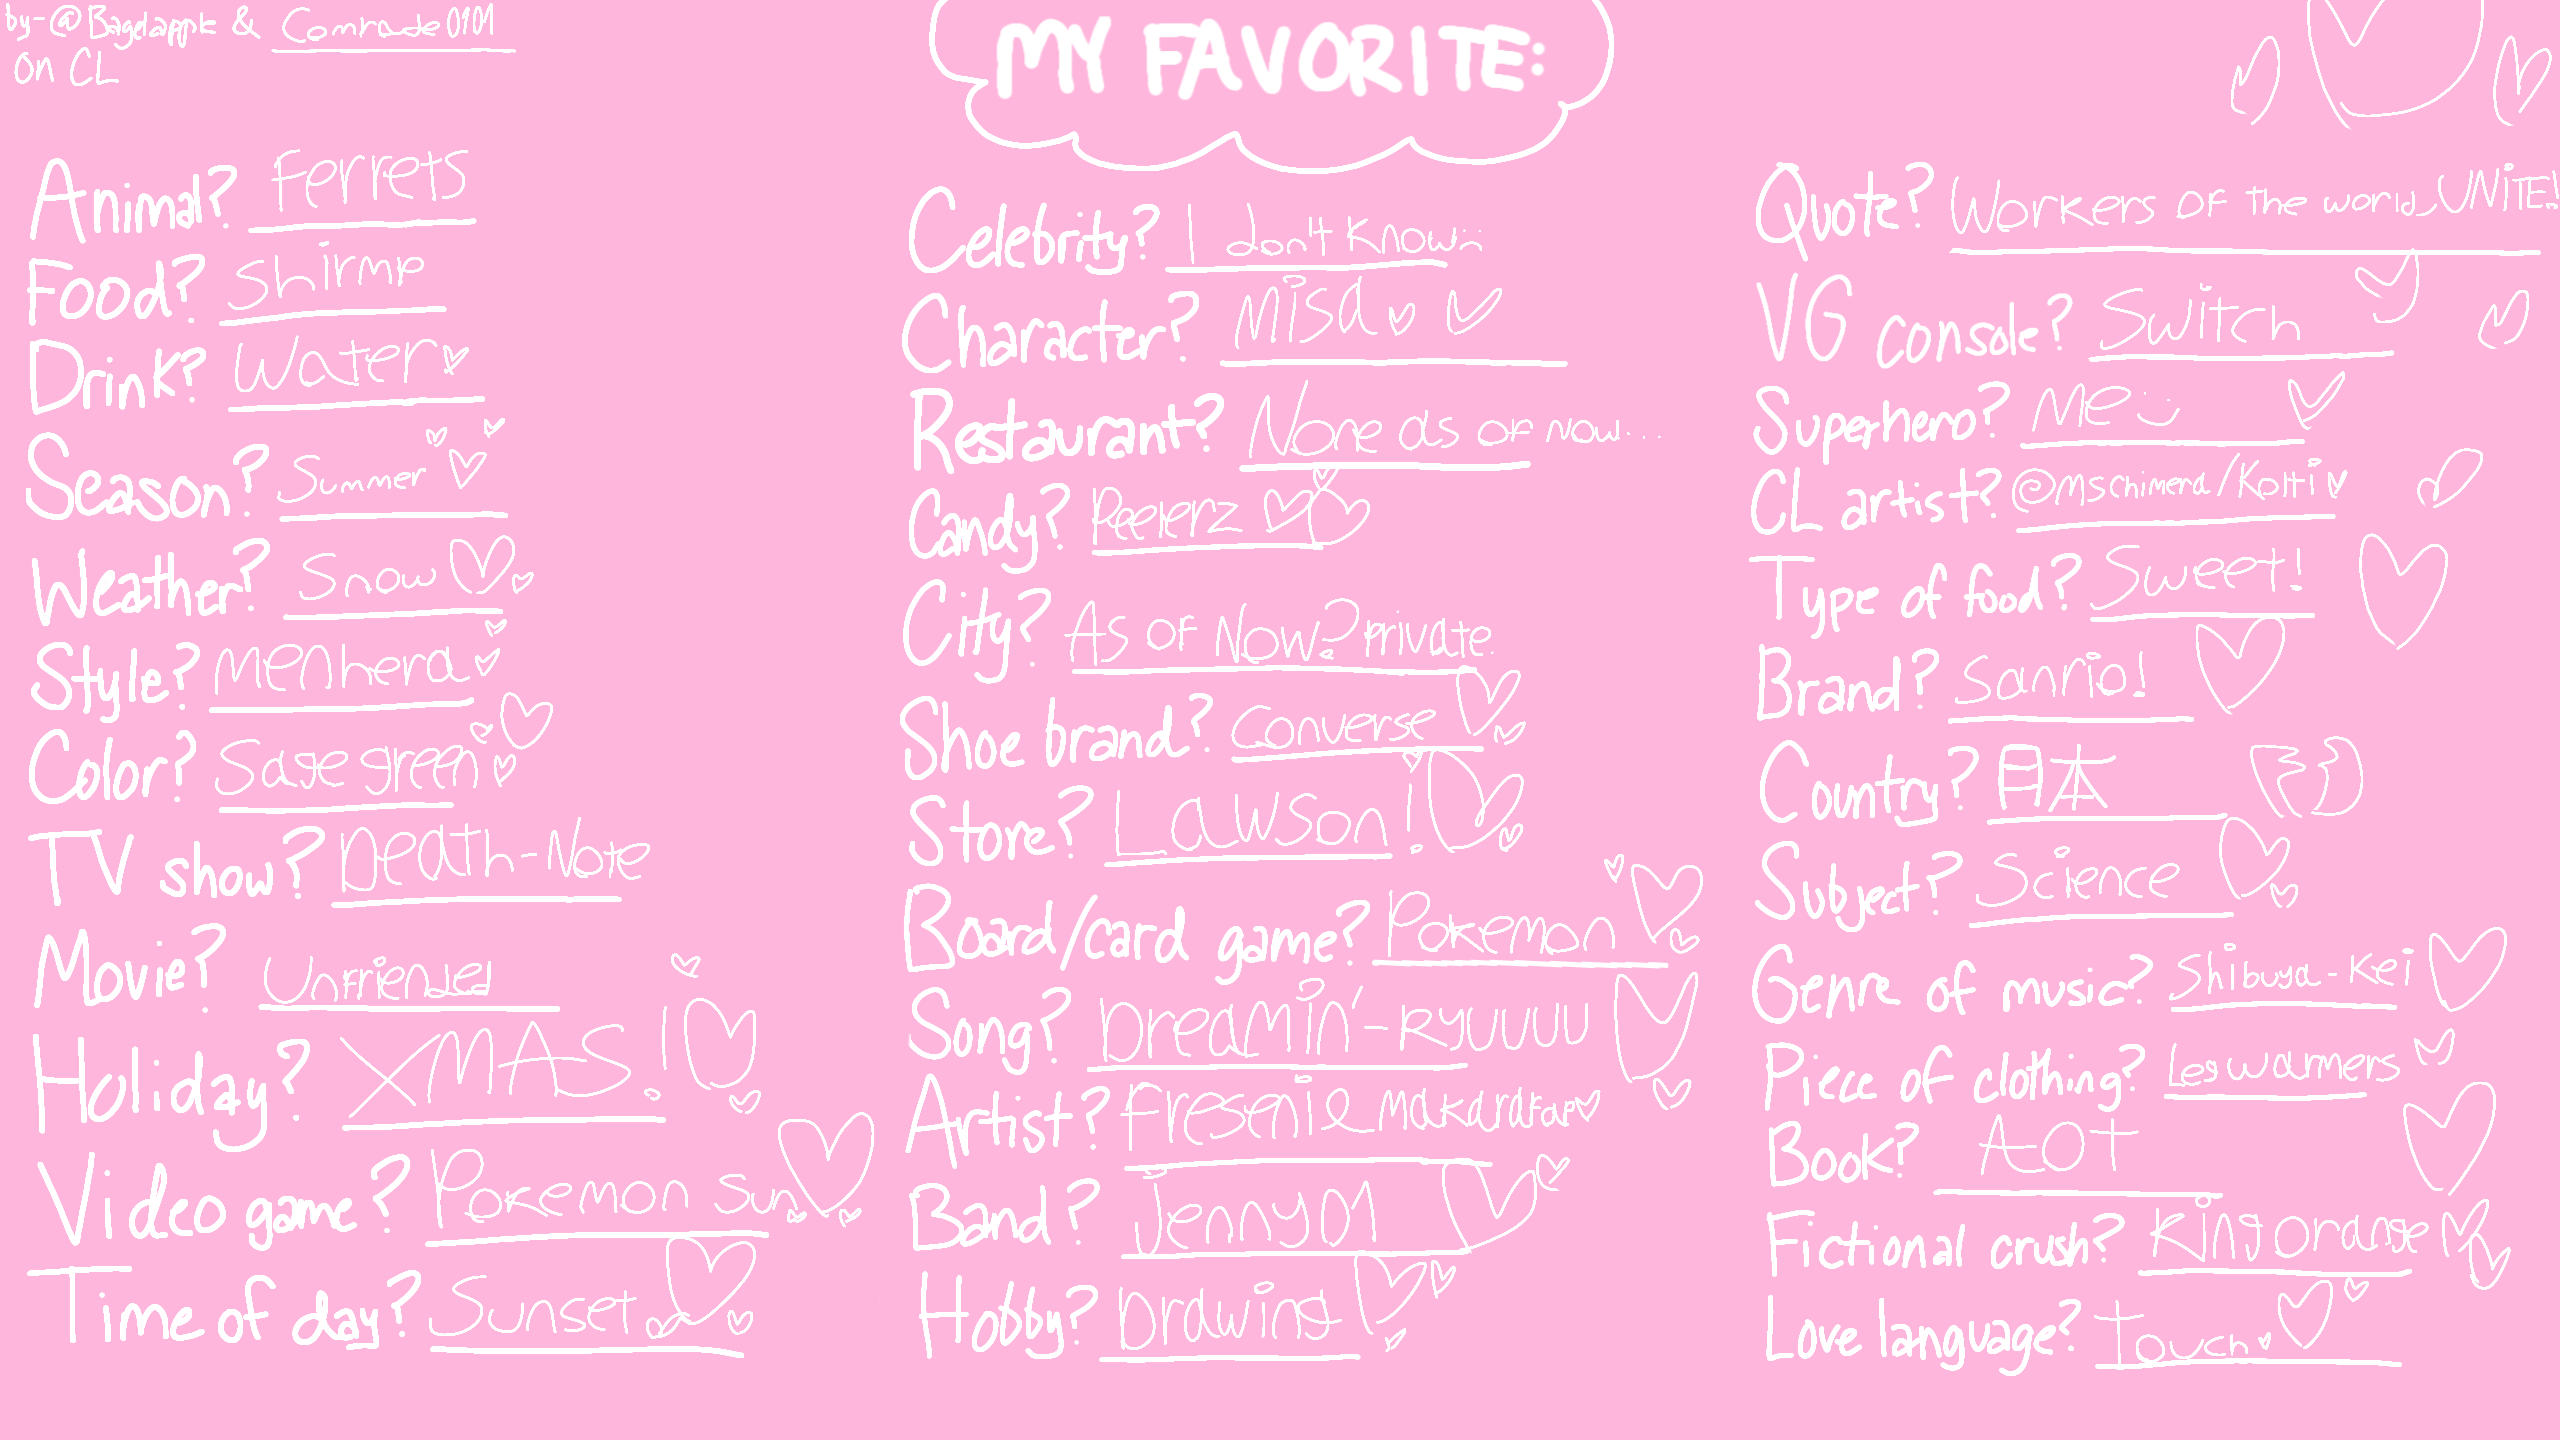 by-@Bagelappk & Comrade0101
on CL
MY FAVORITE:
Animal? Ferrets
Food? Shirmp
Drink? Water
Season? Summer
Weather? Snow
Style? Menhera
Color? Sage green
TV show? Death-Note
Movie? Unfriended
Holiday? XMAS!
Video game? Pokemon Sun
Time of day? Sunset
Celebrity? I don't know
Character? Misa
Restaurant? None as of now...
Candy? Peelerz
City? As of now? private.
Shoe brand? Converse
Store? Lawson!
Board/card game? Pokemon
Song? Dreamin'-Ryuuuu
Artist? Freseni &
Band? Jenny01
Hobby? Drawing
Quote? Workers of the world, UNITE!
VG console? Switch
Superhero? Me
CL artist? @mschimera/Kolti
Type of food? Sweet!
Brand? Sanrio!
Country? 日本
Subject? Science
Genre of music? Shibuya-Kei
Piece of clothing? Leg warmers
Book? AOT
Fictional crush? King orange
Love language? Touch